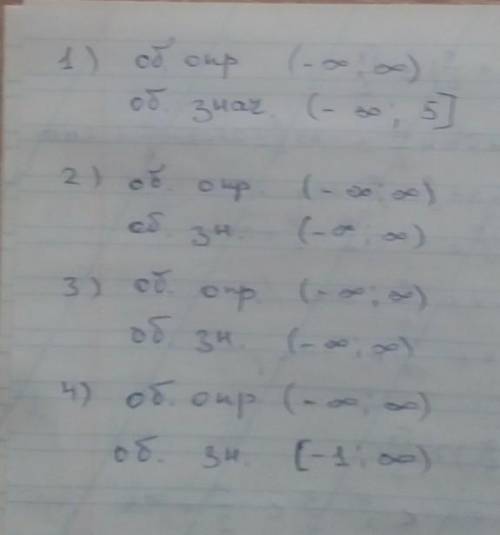 1) об опр (-∞; ∞)
об. знач. (-∞; 5]
2) об. опр. (-∞; ∞)
об. зн. (-∞; ∞)
3) об. опр. (-∞; ∞)
об. зн. (-∞; ∞)
4) об. опр (-∞; ∞)
об. зн. [-1; ∞)